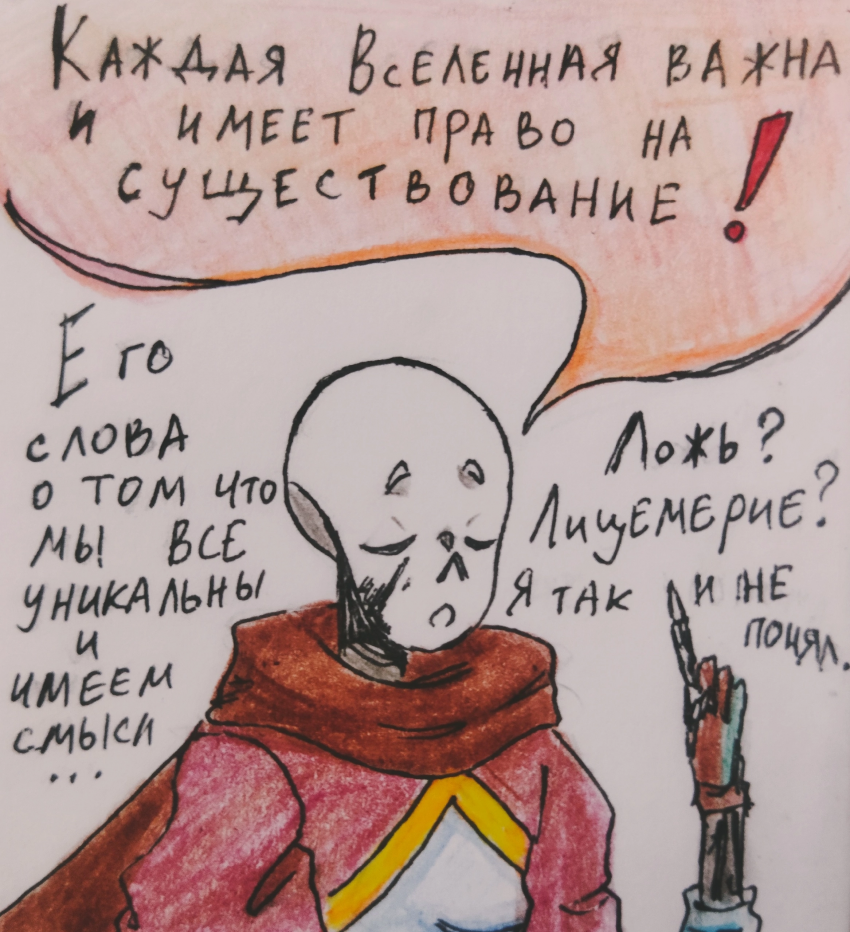 Каждая Вселенная важна
и имеет право на
существование!
Его
слова
о том что
мы все
уникальны
и
имеем
смысл
...
Ложь?
Лицемерие?
Я так и не
понял.